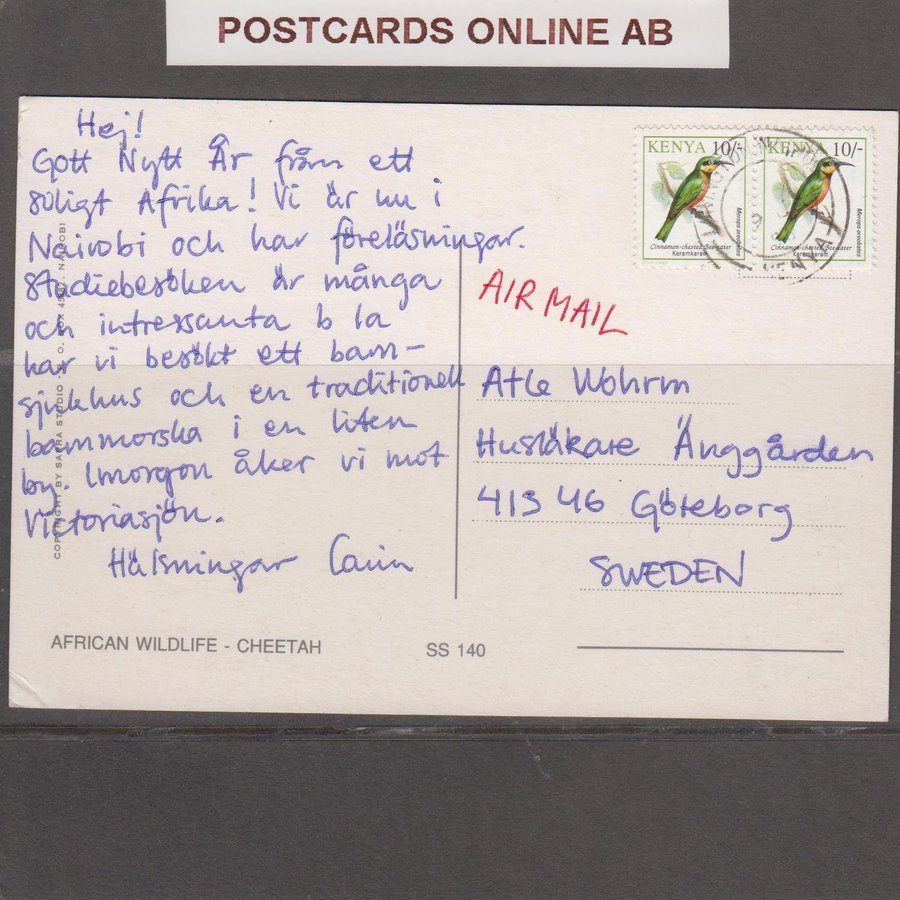 POSTCARDS ONLINE AB
Hej!
Gott Nytt År från ett
soligt Afrika! Vi är nu i
Nairobi och har föreläsningar.
Studiebesöken är många
och intressanta b la
har vi besökt ett barn-
sjukhus och en traditionell
barnmorska i en liten
by. Imorgon åker vi mot
Victoriasjön.
Hälsningar
AIR MAIL
Atle
Husläkare Änggården
413 46 Göteborg
SWEDEN
KENYA 10/-
Cinnamon-chested Bee-eater
Keremkerem
Merops oreobates
KENYA 10/-
Cinnamon-chested Bee-eater
Keremkerem
Merops oreobates
KENYA
COPYRIGHT BY SAPRA STUDIO - P. O. BOX NAIROBI
AFRICAN WILDLIFE - CHEETAH
SS 140